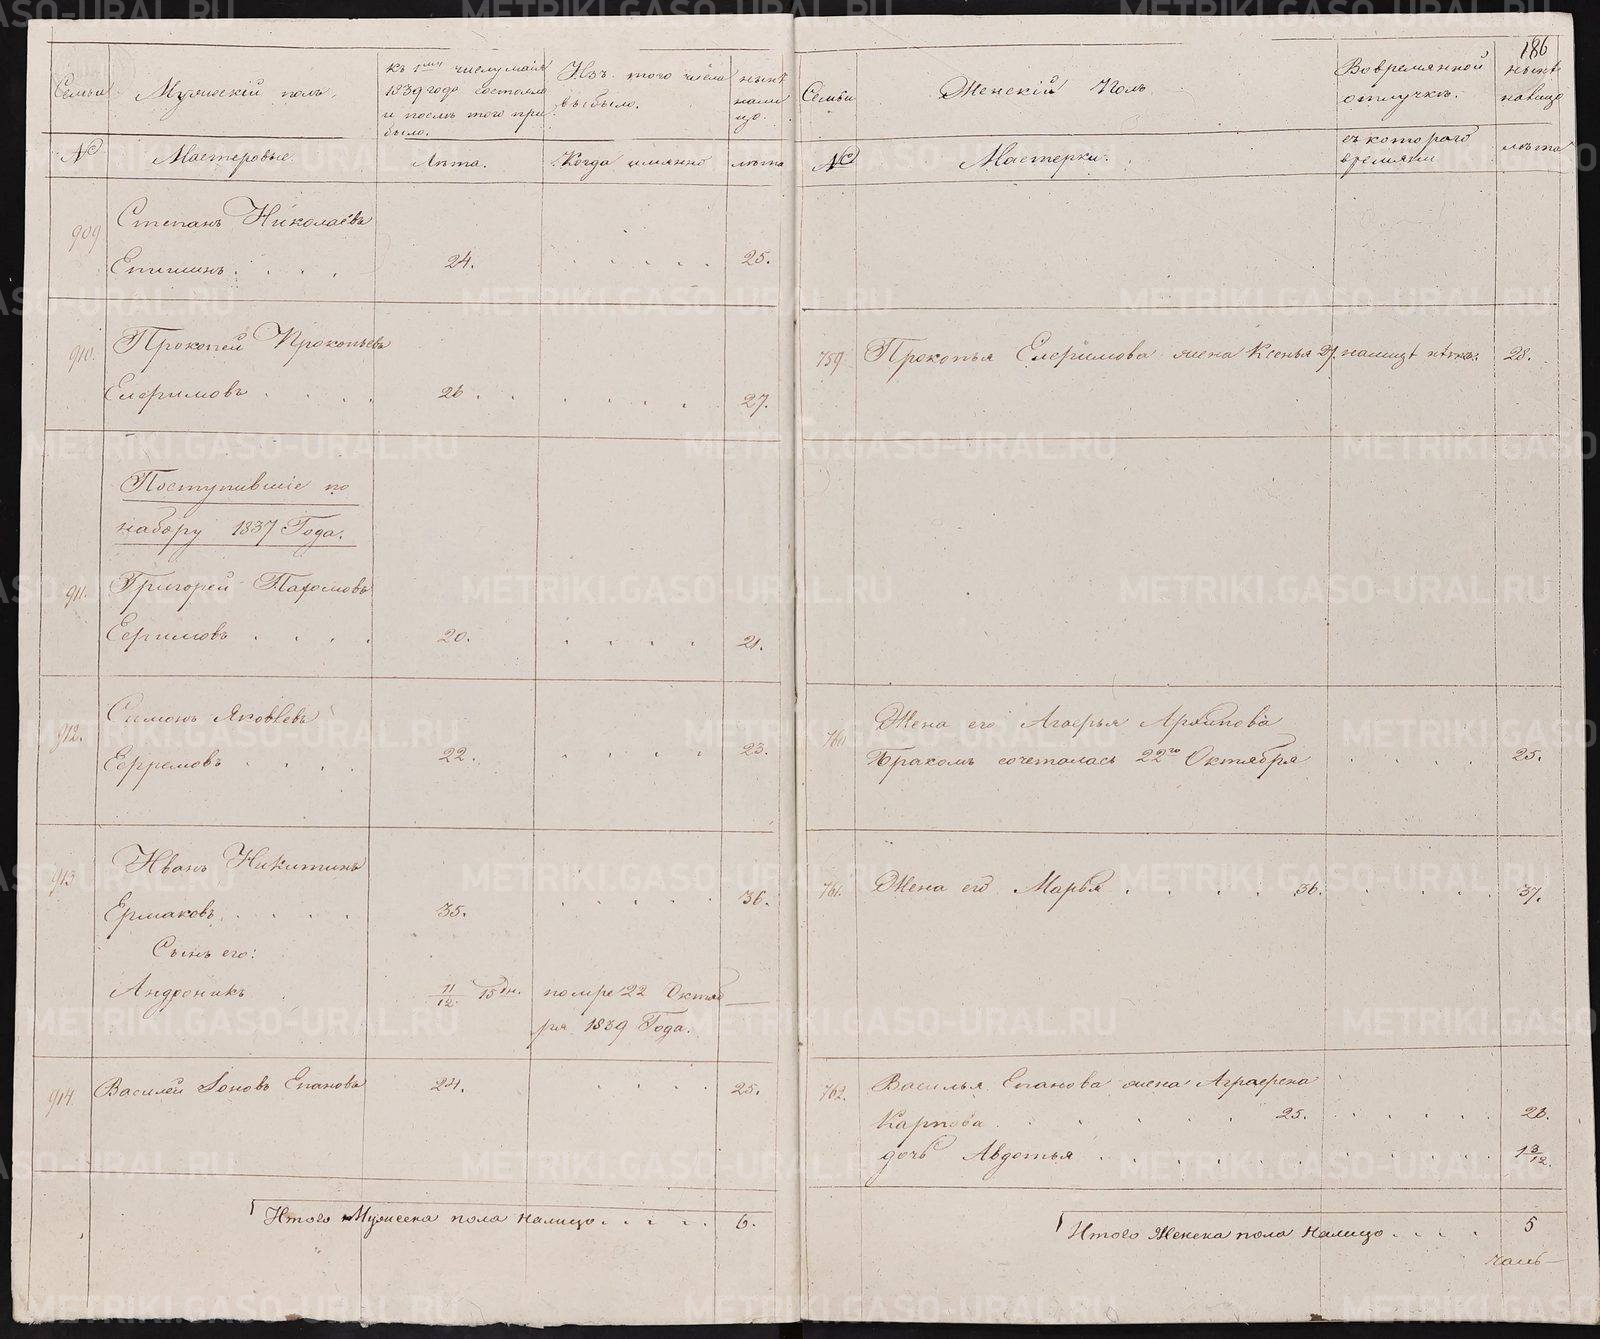 186
Семьи
Мужескій полъ.
къ 1му числу маія
1839 года состояло
и послѣ того при
было.
Изъ того числа
выбыло.
нынѣ
нали
цо.
№
Мастеровые.
Лѣта.
Когда имянно
лѣта
909
Степанъ Николаевъ
Епишинъ . . . . 24. . . . . . 25.
910.
Прокопей Прокопьевъ
Елеφимовъ . . . . 26 . . . . . . 27.
Поступившіе по
набору 1837 Года.
911.
Григорей Пахомовъ
Еφимовъ . . . . 20. . . . . 21.
912.
Симонъ Яковлевъ
Еφремовъ . . . . 22. . . . . 23.
913
Иванъ Никитинъ
Ермаковъ . . . . 35. . . . . . 36.
Сынъ его:
Андроникъ 11/12 15 дн. помре 22 Октяб
ря 1839 Года.
914.
Василей Іоновъ Епановъ 24. . . . . 25.
Итого Мужеска пола налицо . . . . . 6.
Семьи
Женскій Полъ
Вовремянной
отлучкѣ.
нынѣ
налицо
№
Мастерки.
съ котораго
времяни
лѣта
759.
Прокопья Елеφимова жена Ксенья налицѣ 28.
760
Жена его Агаφья Архипова
Бракомъ сочеталась 22го Октября . . . . 25.
761.
Жена его Марья . . . . . 36. . . . . . 37.
762.
Василья Епанова жена Аграφена
Карпова . . . . . 25. . . . . . 26.
дочь Авдотья . . . . . . . . . . 1 3/12.
Итого Женска пола налицо . . . . 5